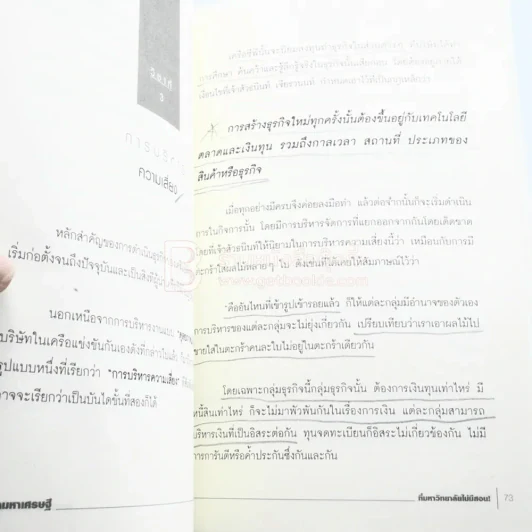 บันไดที่
๑
การบริหาร
ความเสี่ยง
หลักสำคัญของการดำเนินธุรกิจ
เริ่มก่อตั้งจนถึงปัจจุบันและเป็นสิ่งที่ผู้
นอกเหนือจากการบริหารงานแบบ
บริษัทในเครือแข่งขันกันเองดังที่กล่าวไปแล้ว
รูปแบบหนึ่งที่เรียกว่า "การบริหารความเสี่ยง"
าจจะเรียกว่าเป็นบันไดขั้นที่สองก็ได้
มหาเศรษฐี
เครือซีพีนั้นจะนิยมลงทุนทำธุรกิจในส่วนต่างๆ ที่
การศึกษา ค้นคว้าและรู้ลึกรู้จริงในธุรกิจนั้นเสียก่อน โดย
เงื่อนไขที่เจ้าสัวธนินท์ เจียรวนนท์ กำหนดเอาไว้ที่เป็นกฎเหล็กว่า
การสร้างธุรกิจใหม่ทุกครั้งนั้นต้องขึ้นอยู่กับเทคโนโลยี
ตลาดและเงินทุน รวมถึงกาลเวลา สถานที่ ประเภทของ
สินค้าหรือธุรกิจ
เมื่อทุกอย่างมีครบจึงค่อยลงมือทำ แล้วต่อจากนั้นก็จะเริ่มดำเนิน
การในกิจการนั้น โดยมีการบริหารจัดการที่แยกออกจากกันโดยเด็ดขาด
โดยที่เจ้าสัวธนินท์ให้นิยามในการบริหารความเสี่ยงนี้ว่า เหมือนกับการมี
ตะกร้าใส่ผลไม้หลายๆ ใบ ดังเช่นที่ได้เคยให้สัมภาษณ์ไว้ว่า
"คืออันไหนที่เข้ารูปเข้ารอยแล้ว ก็ให้แต่ละกลุ่มมีอำนาจของตัวเอง
การบริหารของแต่ละกลุ่มจะไม่ยุ่งเกี่ยวกัน เปรียบเทียบว่าเราเอาผลไม้ไป
ขายใส่ในตะกร้าคนละใบไม่อยู่ในตะกร้าเดียวกัน
โดยเฉพาะกลุ่มธุรกิจนี้กลุ่มธุรกิจนั้น ต้องการเงินทุนเท่าไหร่ มี
หนี้สินเท่าไหร่ ก็จะไม่มาพัวพันกันในเรื่องการเงิน แต่ละกลุ่มสามารถ
บริหารเงินที่เป็นอิสระต่อกัน ทุนจดทะเบียนก็อิสระไม่เกี่ยวข้องกัน ไม่มี
การการันตีหรือค้ำประกันซึ่งกันและกัน
ที่มหาวิทยาลัยไม่มีสอน! 73
www.getbookie.com